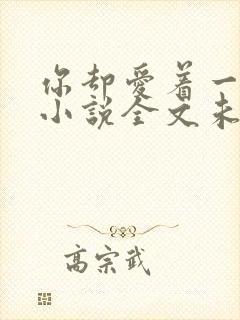 你却爱着一
小说全文未
高宗武